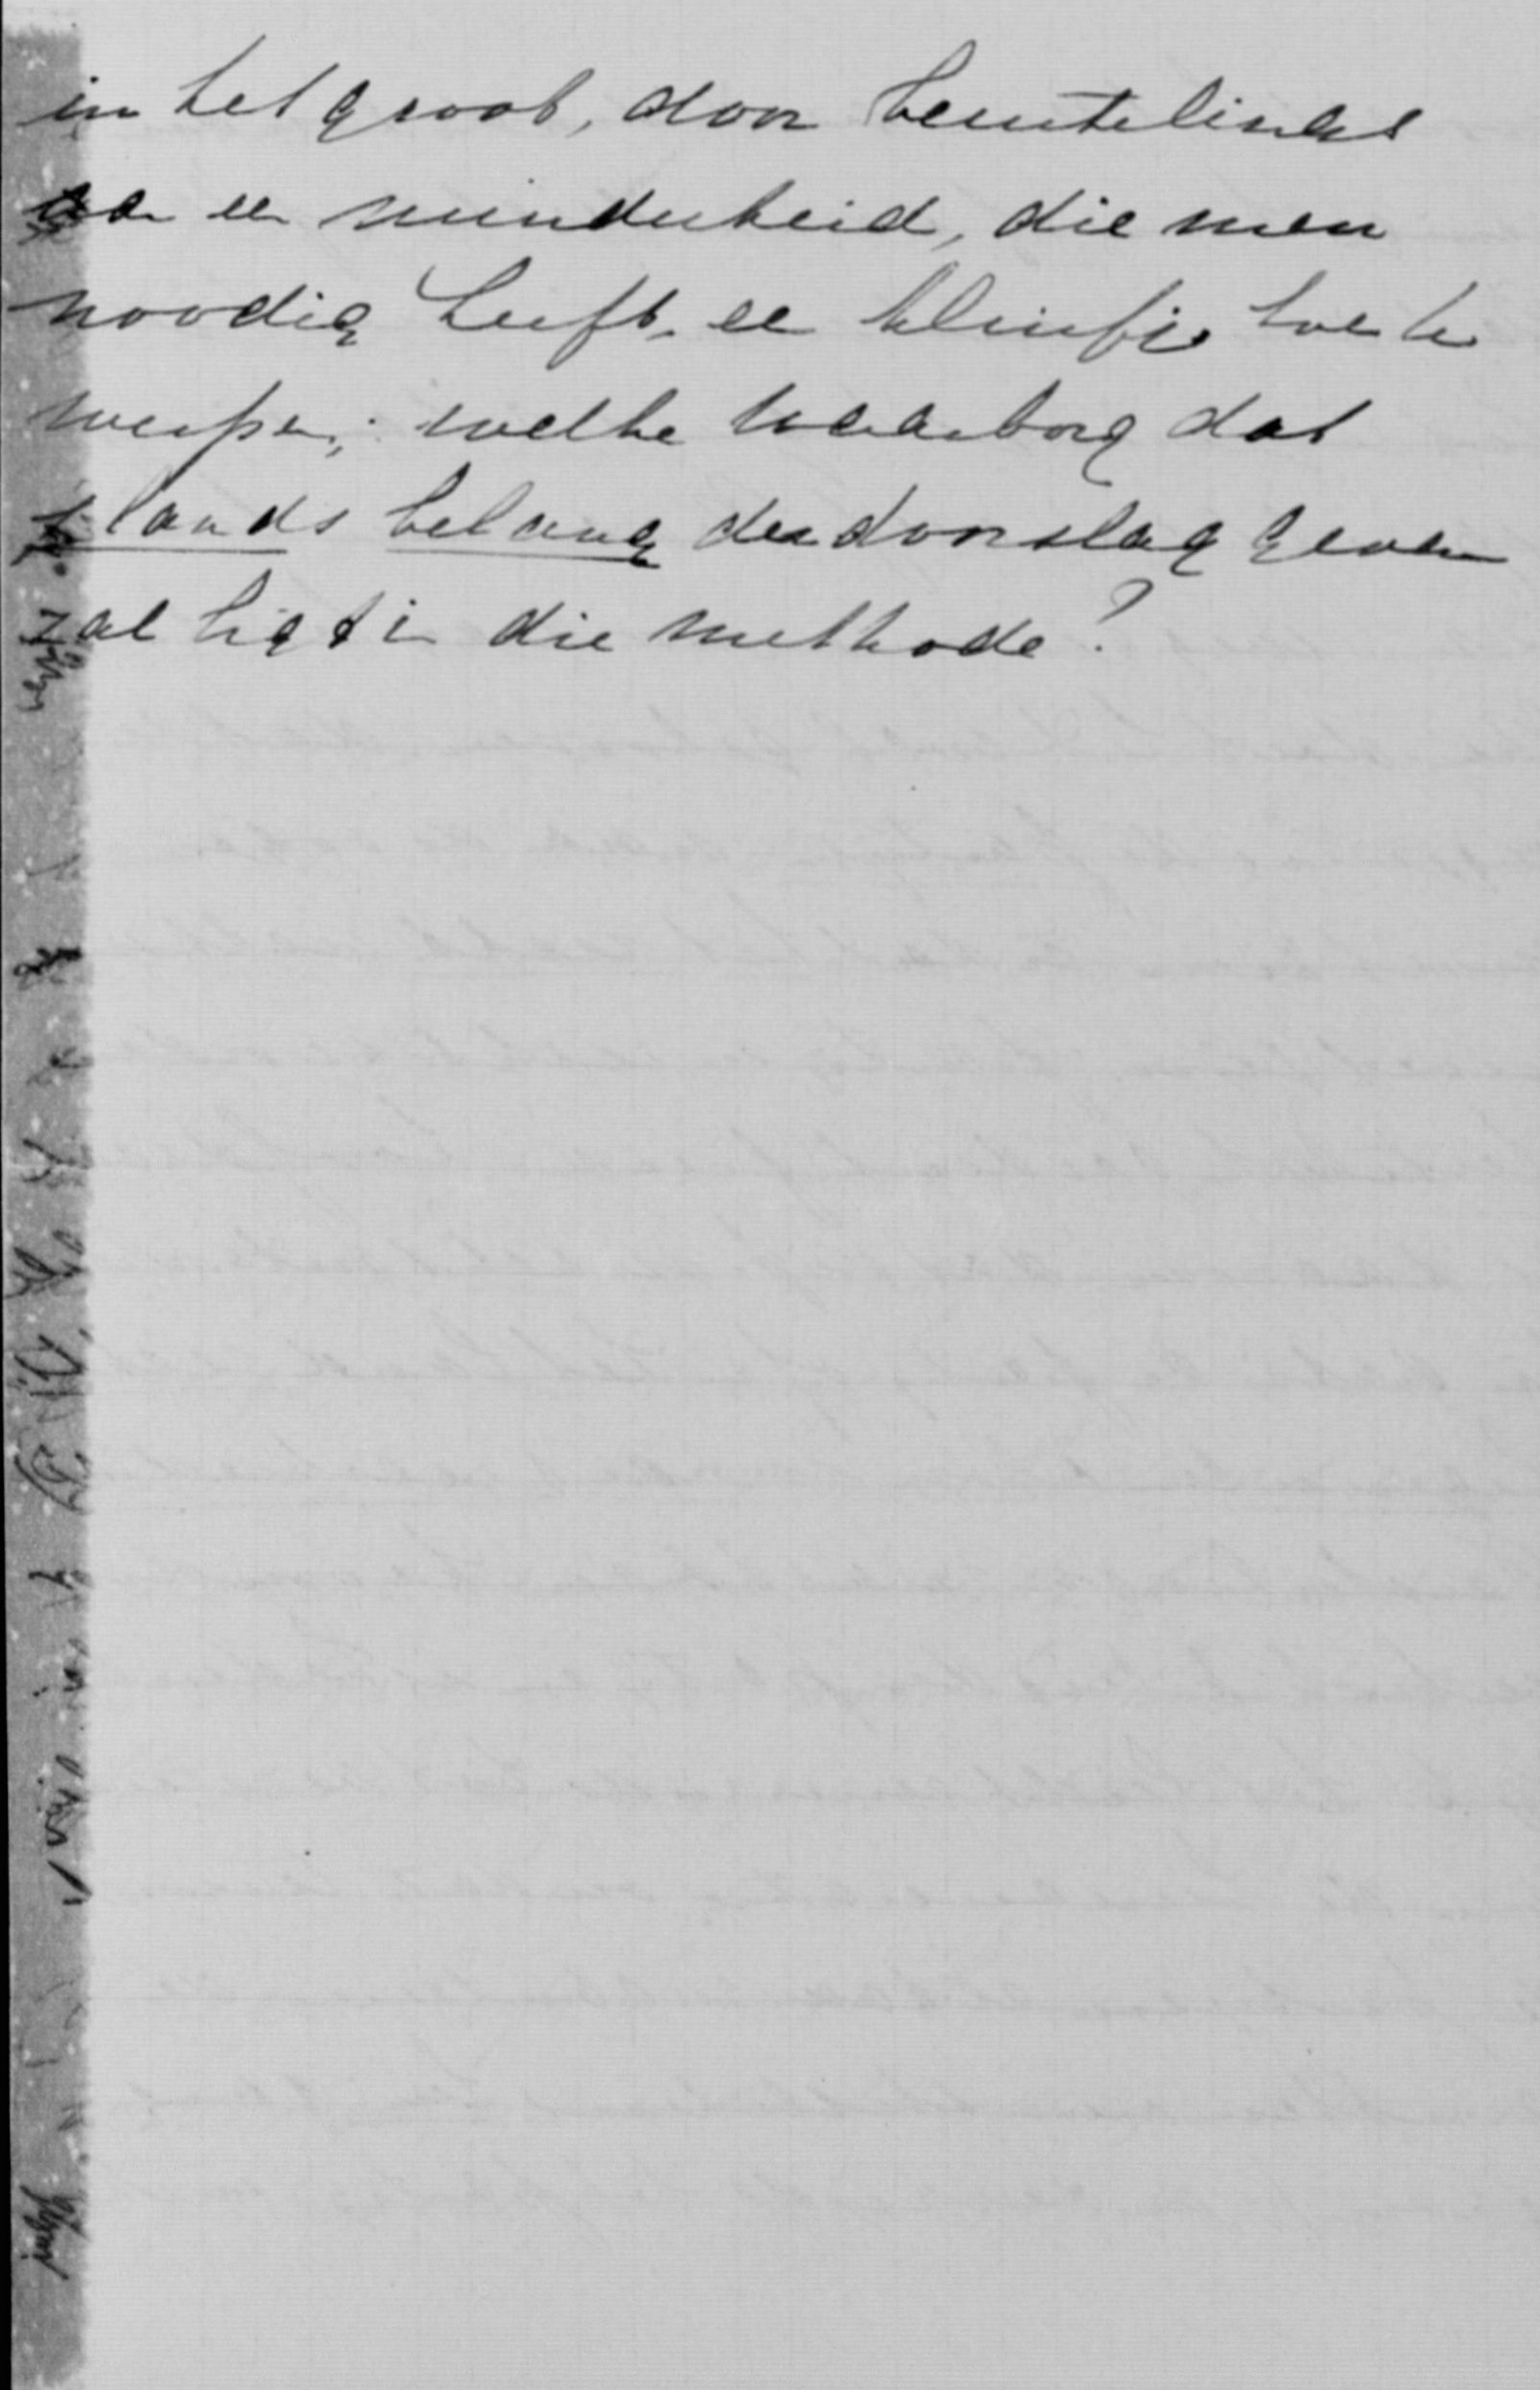 in het groot, door beurtelings
aan een minderheid, die men
noodig heeft, een kluifje toe te
werpen; welke waarborg dat
's lands belang den doorslag geven
zal ligt in die methode?